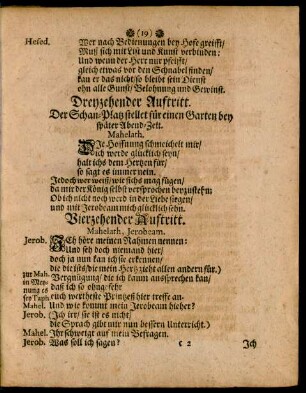 (19)
Hesed. Wer nach Bedienungen bey Hofe greifft/
Muß sich mit List und Kunst verbinden:
Und wenn der Herr nur pfeifft/
gleich etwas vor den Schnabel finden/
kan er das nicht/so bleibt sein Dienst
ohn alle Gunst/ Belohnung und Gewinst.
Dreyzehender Aufftritt.
Der Schau-Platz stellet für einen Garten bey
später Abend-Zeit.
Mahelath.
DIe Hoffnung schmeichelt mir/
Dich werde glücklich seyn/
halt ichs dem Hertzen für/
so sagt es immer nein.
Jedoch wer weiß/ wie sichs mag fügen/
da mir der König selbst versprochen
Ob ich nicht noch werd in der Liebe siegen/
und mit Jerobeam mich glücklich sehn.
Vierzehender Aufftritt.
Mahelath. Jerobeam.
Jerob. ICh höre meinen Nahmen nennen:
Und seh doch niemand hier/
doch ja nun kan ich sie erkennen/
die die ists/die mein Hertz zieht allen andern für.)
zur Mah. Vergnügung/ die ich kaum aussprechen kan/
in Mey- daß ich so ohngefehr
nung es euch wertheste Printzeß hier treffe an.
sey Tapis.
Mahel. Und wie kommt mein Jerobeam hieher?
Jerob. (Ich irr/ sie ist es nicht/
die Sprach gibt mir nun bessern Unterricht.)
Mahel. Ihr schweigt auf mein Befragen.
Jerob. Was soll ich sagen?
c 2 Ich